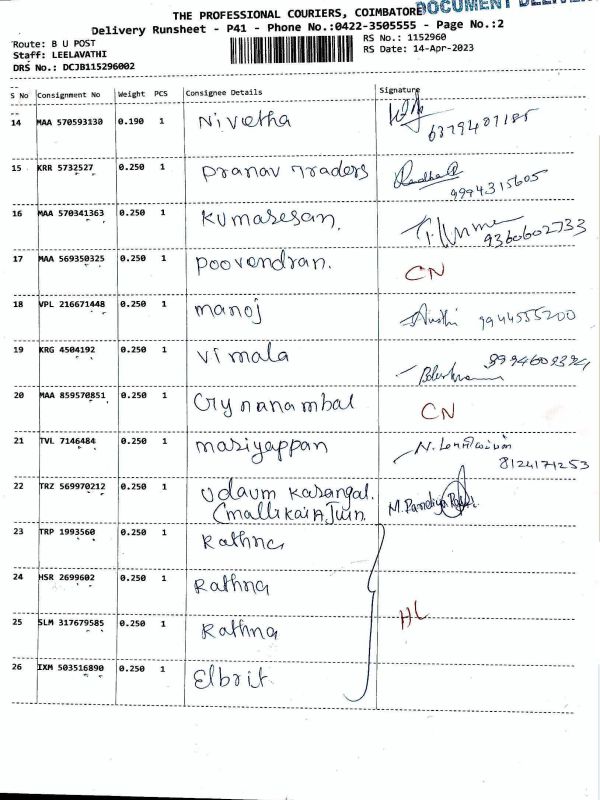 DOCUMENT DELIVE
THE PROFESSIONAL COURIERS, COIMBATORE
Delivery Runsheet - P41 - Phone No.:0422-3505555 - Page No.:2
Route: B U POST
RS No.: 1152960
Staff: LEELAVATHI
RS Date: 14-Apr-2023
DRS No.: DCJB115296002
S No Consignment No Weight PCS Consignee Details Signature
14 MAA 570593130 0.190 1 Nivetha
6379407185
15 KRR 5732527 0.250 1 Pranav Traders
9994315605
16 MAA 570341363 0.250 1 Kumaresan.
9360602733
17 MAA 569350325 0.250 1 Poovendran. CN
18 VPL 216671448 0.250 1 manoj 9944555200
19 KRG 4504192 0.250 1 Vimala
20 MAA 859570851 0.250 1 Gynanambal CN
21 TVL 7146484 0.250 1 mariyappan
8124171253
22 TRZ 569970212 0.250 1 Udavum Karangal.
23 TRP 1993560 0.250 1 Rathna
24 HSR 2699602 0.250 1 Rathna
25 SLM 317679585 0.250 1 Rathna HL
26 IXM 503516890 0.250 1 Elbrit